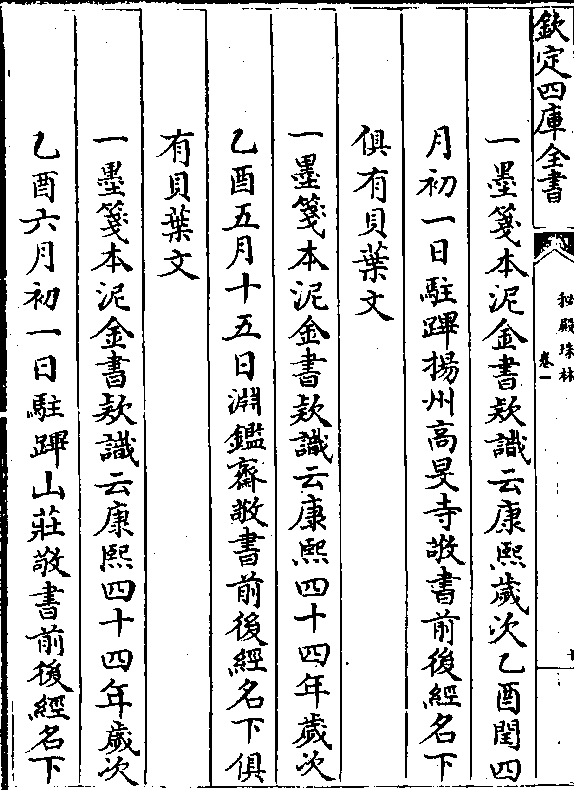 欽定四庫全書
秘殿珠林
卷一
一墨箋本泥金書款識云康熙歲次乙酉閏四
月初一日駐蹕揚州高旻寺敬書前後經名下
俱有貝葉文
一墨箋本泥金書款識云康熙四十四年歲次
乙酉五月十五日淵鑑齋敬書前後經名下俱
有貝葉文
一墨箋本泥金書款識云康熙四十四年歲次
乙酉六月初一日駐蹕山莊敬書前後經名下